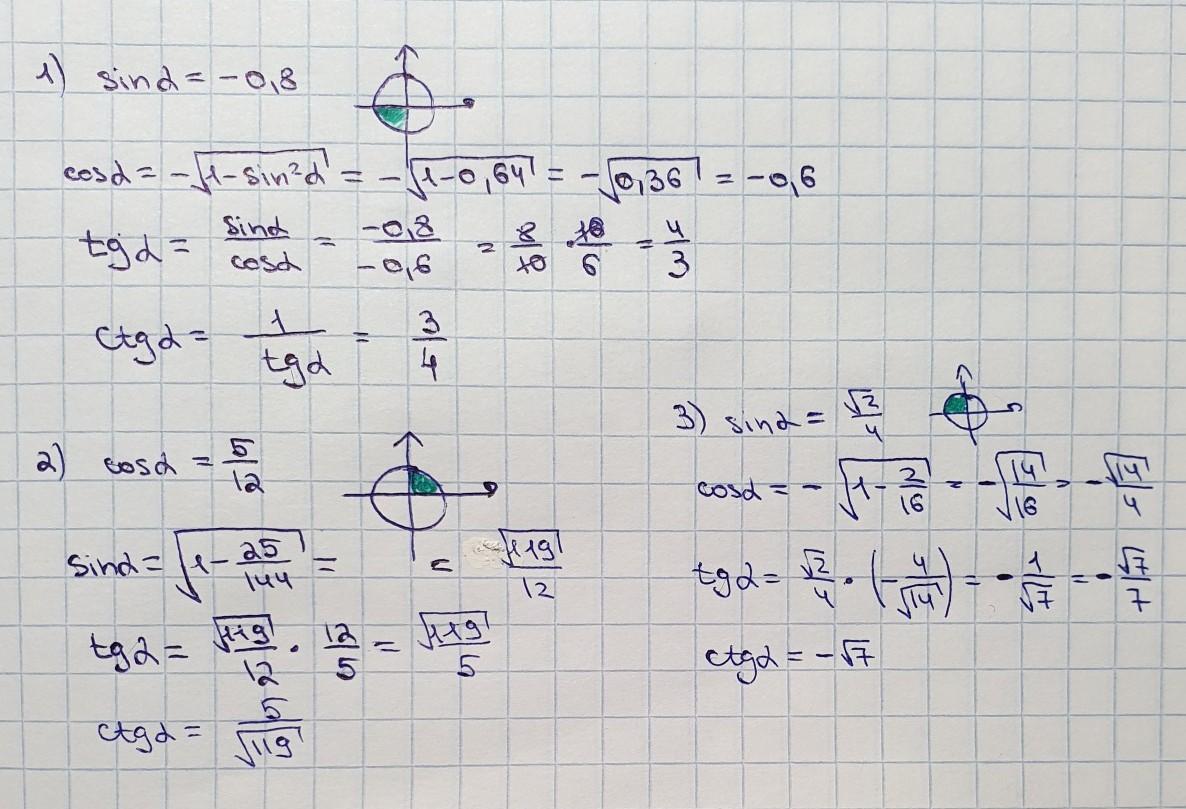 1) sinα = -0,8
cosα = -√(1-sin²α) = -√(1-0,64) = -√(0,36) = -0,6
tgα = sinα/cosα = -0,8/-0,6 = 8/10 · 10/6 = 4/3
ctgα = 1/tgα = 3/4
2) cosα = 5/12
sinα = √(1-25/144) = = √119/12
tgα = √119/12 · 12/5 = √119/5
ctgα = 5/√119
3) sinα = √2/4
cosα = -√(1-2/16) = -√(14/16) = -√14/4
tgα = √2/4 · (-4/√14) = -1/√7 = -√7/7
ctgα = -√7